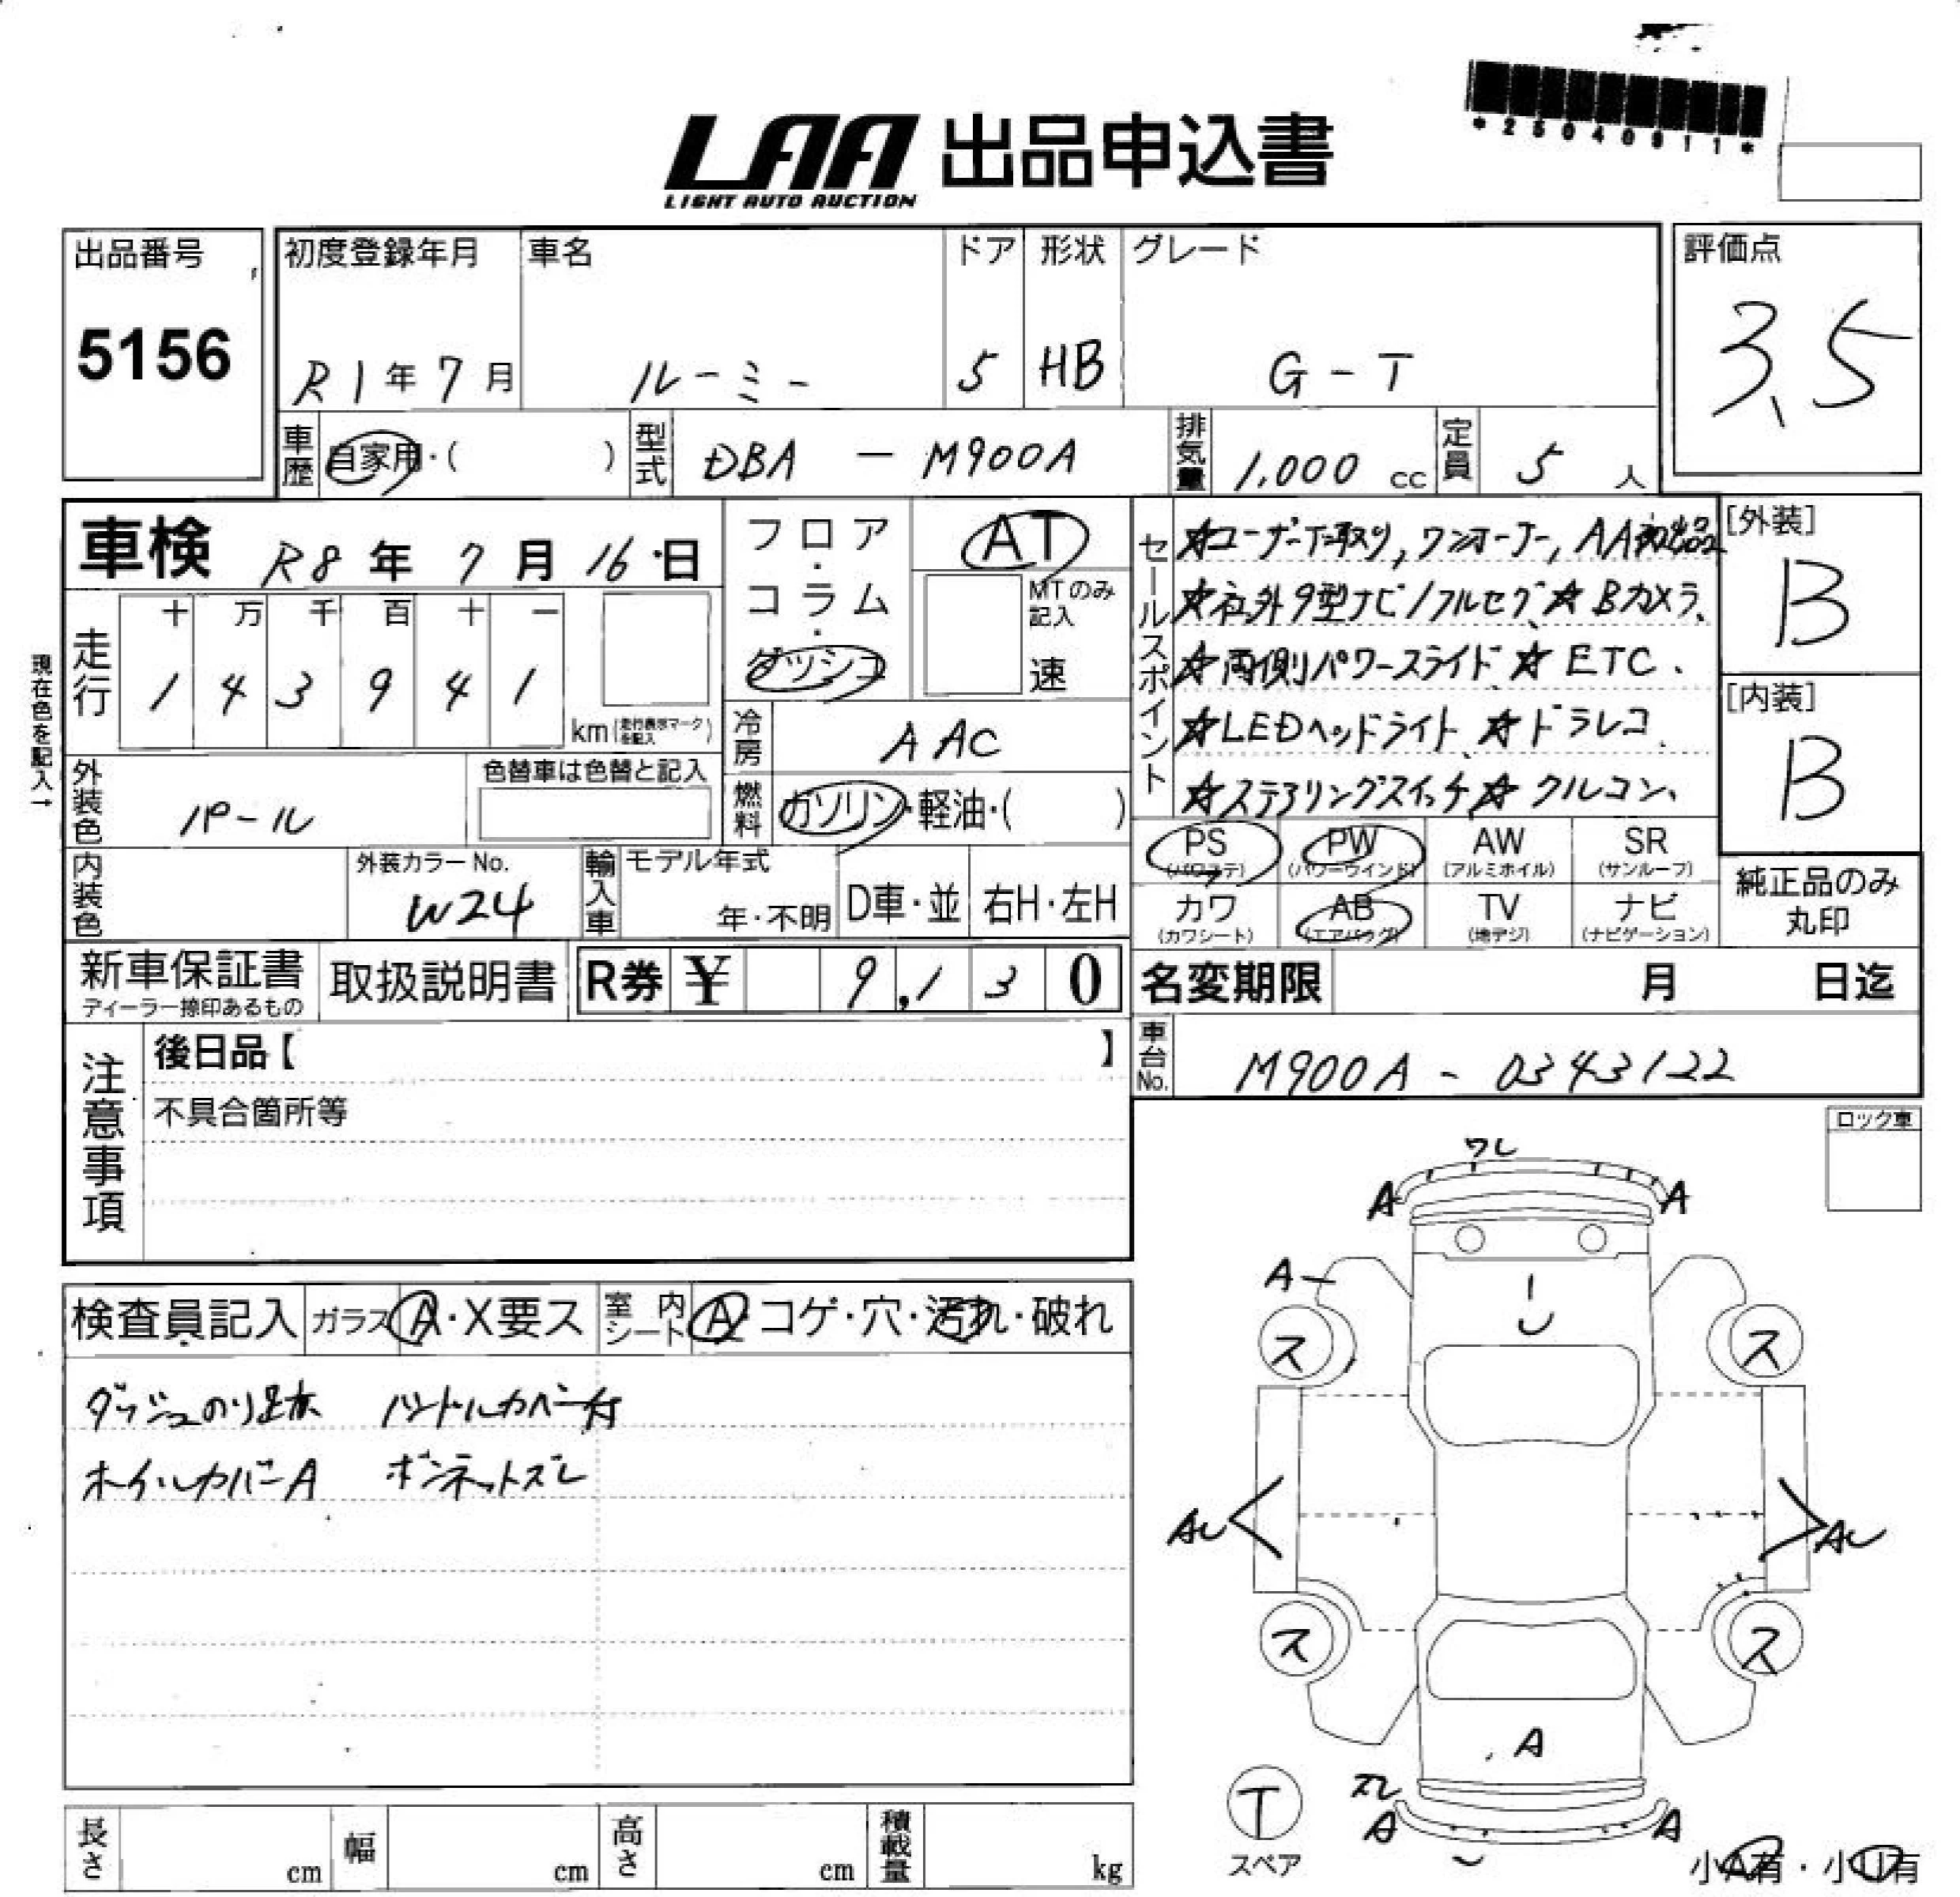 *25040911*
LAA 出品申込書
LIGHT AUTO AUCTION
出品番号
5156
初度登録年月
R1年7月
車名
ルーミー
ドア
5
形状
HB
グレード
G-T
評価点
3.5
車歴
自家用・( )
型式
DBA - M900A
排気量
1,000 cc
定員
5 人
車検 R8年 7月 16日
フロア・コラム・ダッシュ
AT
MTのみ記入
速
走行
十 万 千 百 十 一
1 4 3 9 4 1
km(走行表示マークを記入)
現在色を記入→
冷房
AAC
外装色
パール
色替車は色替と記入
燃料
ガソリン・軽油・( )
内装色
外装カラーNo.
W24
輸入車
モデル年式
年・不明
D車・並
右H・左H
セールスポイント
☆ユーザー下取り,ワンオーナー,AA初出品
☆社外9型ナビ/フルセグ、☆Bカメラ、
☆両側パワースライド ☆ETC、
☆LEDヘッドライト、☆ドラレコ、
☆ステアリングスイッチ☆クルコン、
[外装]
B
[内装]
B
PS
(パワステ)
PW
(パワーウインド)
AW
(アルミホイル)
SR
(サンルーフ)
カワ
(カワシート)
AB
(エアバッグ)
TV
(地デジ)
ナビ
(ナビゲーション)
純正品のみ
丸印
新車保証書
ディーラー捺印あるもの
取扱説明書
R券 ¥ 9,130
名変期限 月 日迄
車台No.
M900A - 0343122
注意事項
後日品【 】
不具合箇所等
ロック車
検査員記入
ガラス A・X要ス
室内シート A・コゲ・穴・汚れ・破れ
ダッシュのり跡 ハンドルカバー付
ホイルカバーA ボンネットズレ
ワレ
A A
A
ス ス
AU AU
ス ス
A
ズレ
A A
T
スペア
小A有・小U有
長さ cm
幅 cm
高さ cm
積載量 kg